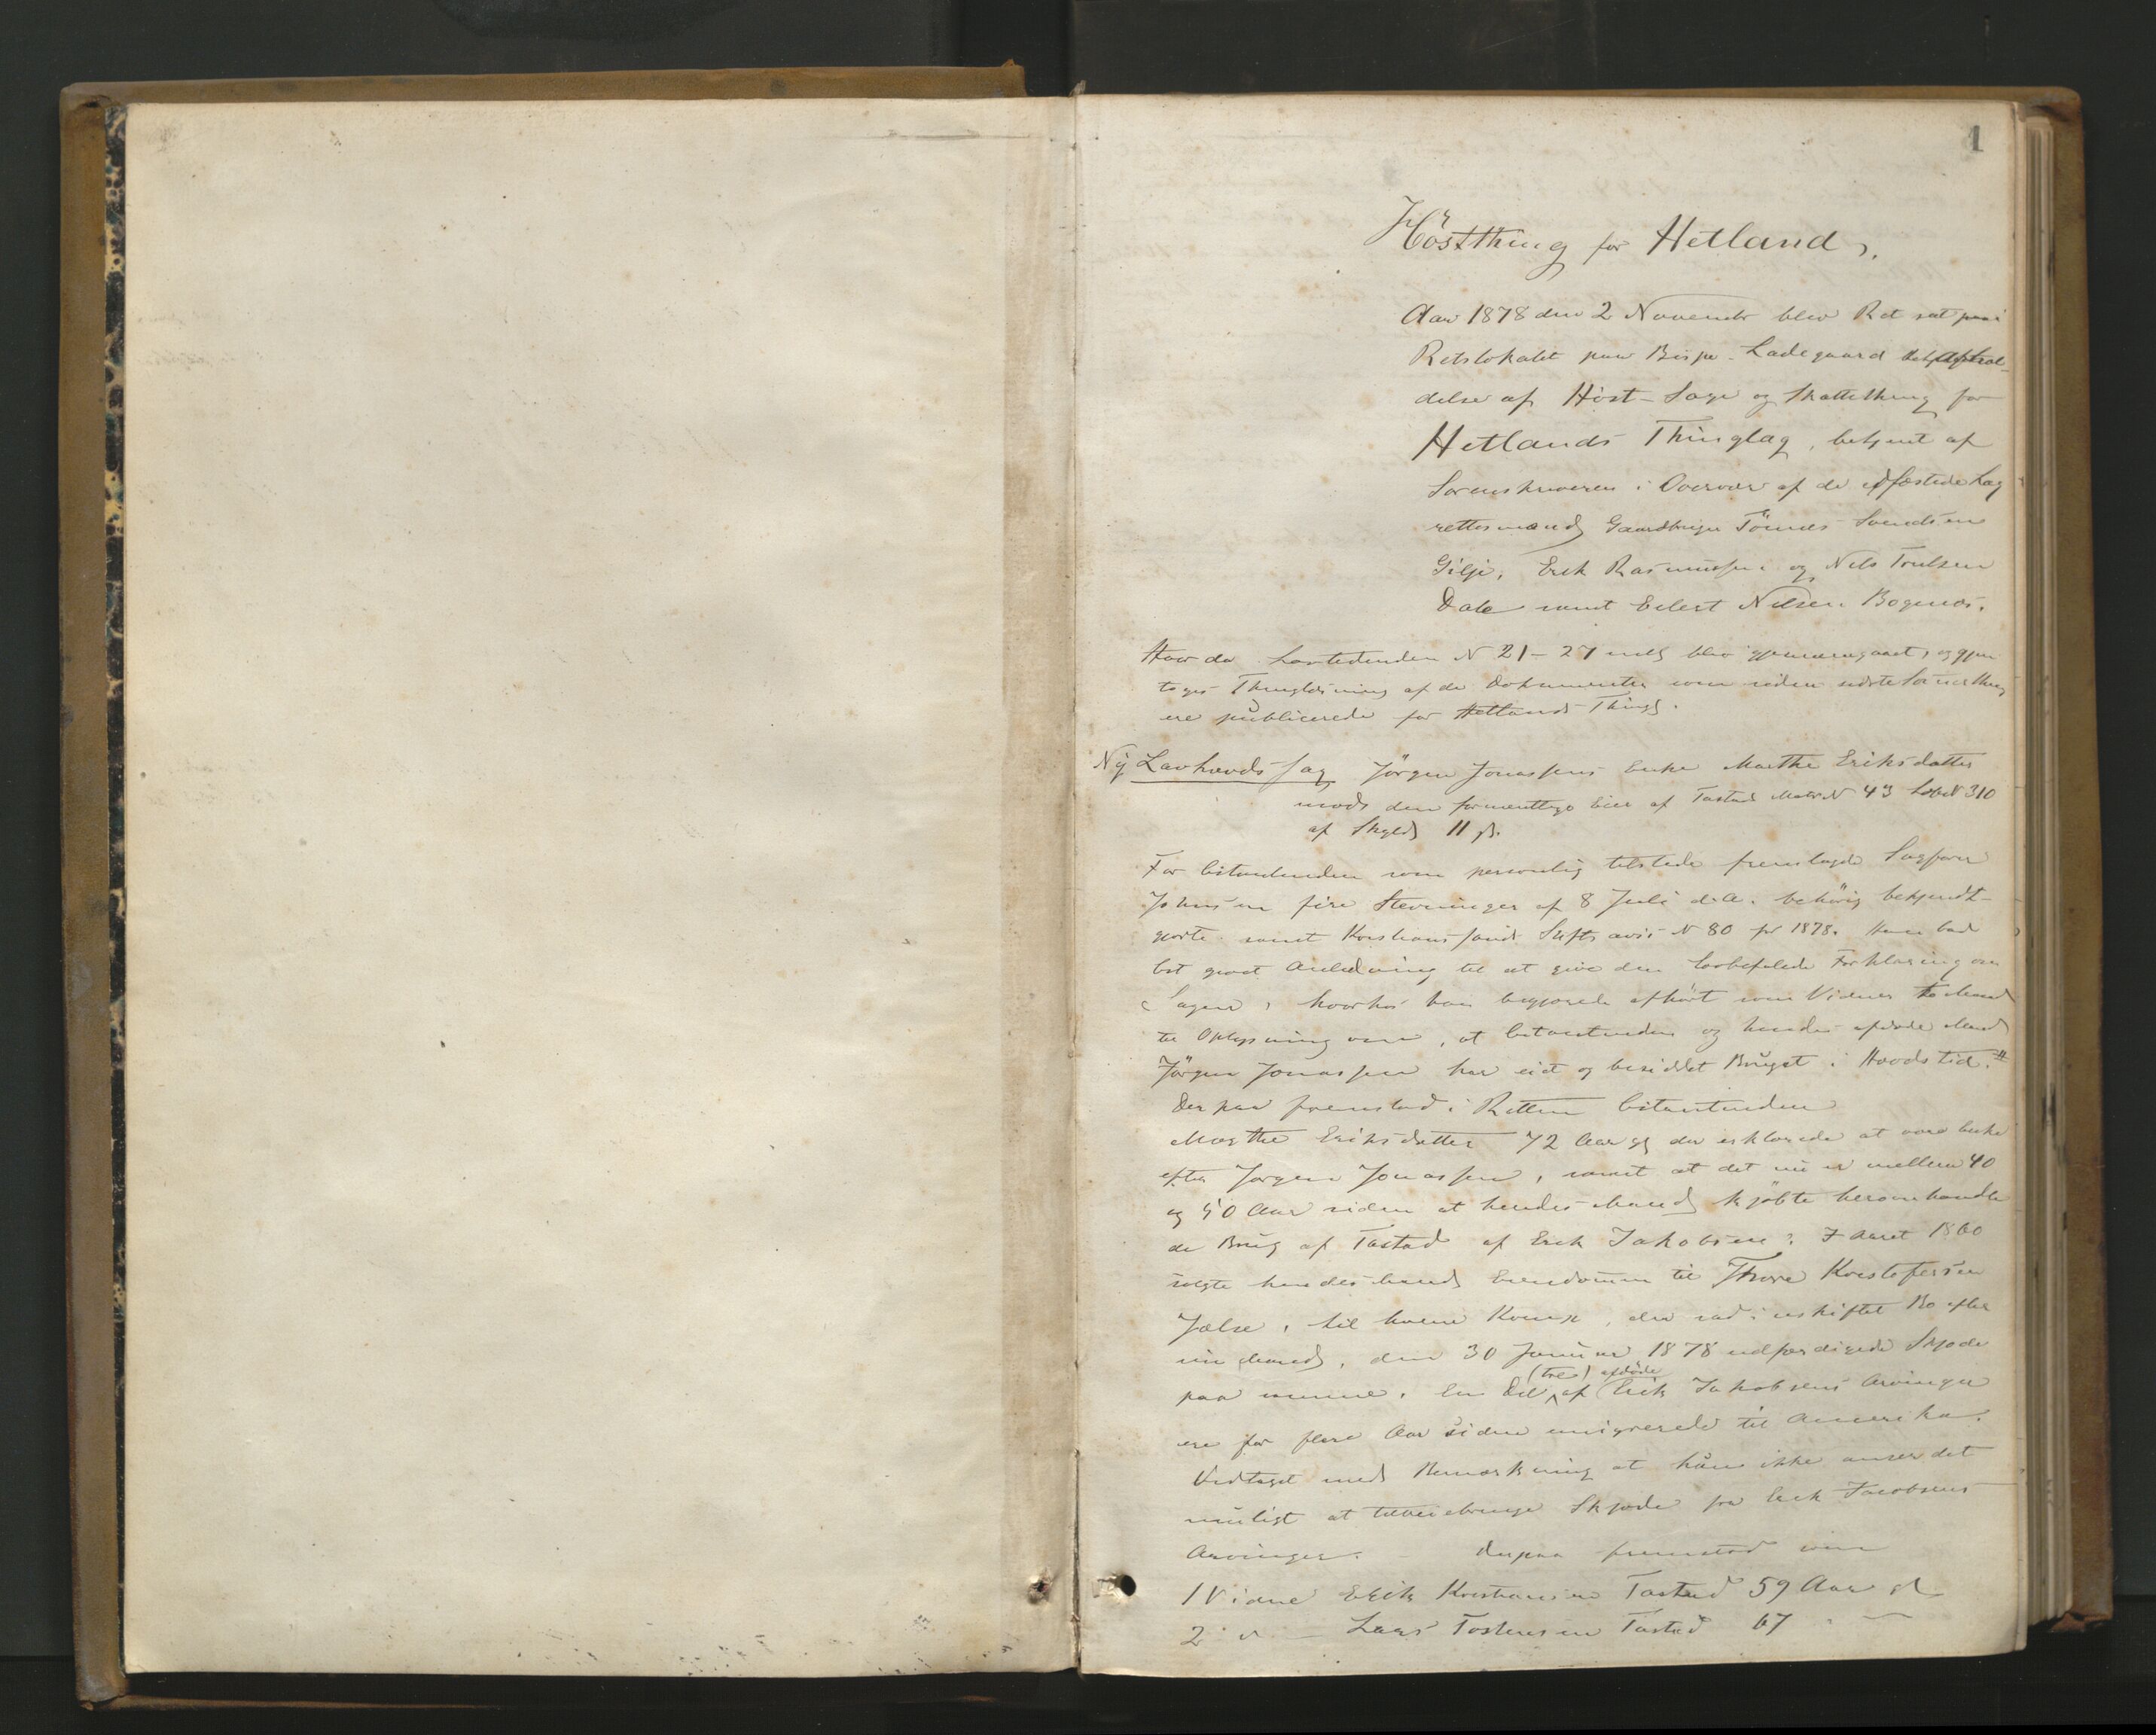 1
Høstthing for Hetland.
Aar 1878 den 2 Novembr blev Ret sat paa
Retslokalet paa Bispe-Ladegaard
delse af Høst- Sage og Skattething for
Hetlands Thinglag, betjent af
Sorenskriveren i Overvær af de edfæstede Lag
rettesmænd Gaardbruger Tönnes Svendsen
Gilje, Erik Rasmussen og Nils Troulsen
Dale samt Eilert Nilsen Bogenæs.
Hvor da Lovtidenden N 21-27 incl blev gjennemgaaet, og gjen
toges Thinglæsning af de Dokumenter som siden sidste Sommerthing
ere publicerede for Hetlands Thingl.
Ny Lavhævds Sag Jörgen Jonassens Enke Marthe Eriksdatter
mod den formentlige Eier af Tastad Matr N 43 Løbe N 310
af Skyld 11 ß.
For Citantinden som personlig tilstede fremlagde Sagfører
Johnsen fire Stevninger af 8 Juli d.A. behörig bekjendt-
gjorte samt Kristianssands Stiftsavis N 80 for 1878. Han bad
Cit givet Anledning til at give den lovbefalede Forklaring om
Sagen, hvorhos han begjærede afhørt som Vidner to Mænd
til Oplysning om, at Citantinden og hendes afdøde Mand
Jörgen Jonassen har eiet og besiddet Bruget i Hævdstid. #
Derpaa fremstod i Retten Citantinden
Marthe Eriksdatter 72 Aar gl der erklærede at være Enke
efter Jørgen Jonassen, samt at det nu er mellem 40
og 50 Aar siden at hendes Mand kjöbte heromhandle
de Brug af Tastad af Erik Jakobsen. I Aaret 1860
solgte hendes Mand Eiendommen til Thore Kristofersen
Jælse, til hvem Komp, der sad i uskiftet Bo efter
sin Mand, den 30 Januar 1878 udfærdigede Skjøde
(tre) afdøde
paa samme. En Del af Erik Jakobsens Arvinger
ere for flere Aar siden emigrerede til Amerika.
Vedtaget med Bemærkning at hun ikke anser det
muligt at tilveiebringe Skjøde fra Erik Jacobsens
Arvinger. - Derpaa fremstod som
1 Vidne Erik Kristiansen Tastad 59 Aar gl
2 " - Lars Tostensen Tastad 67 " -